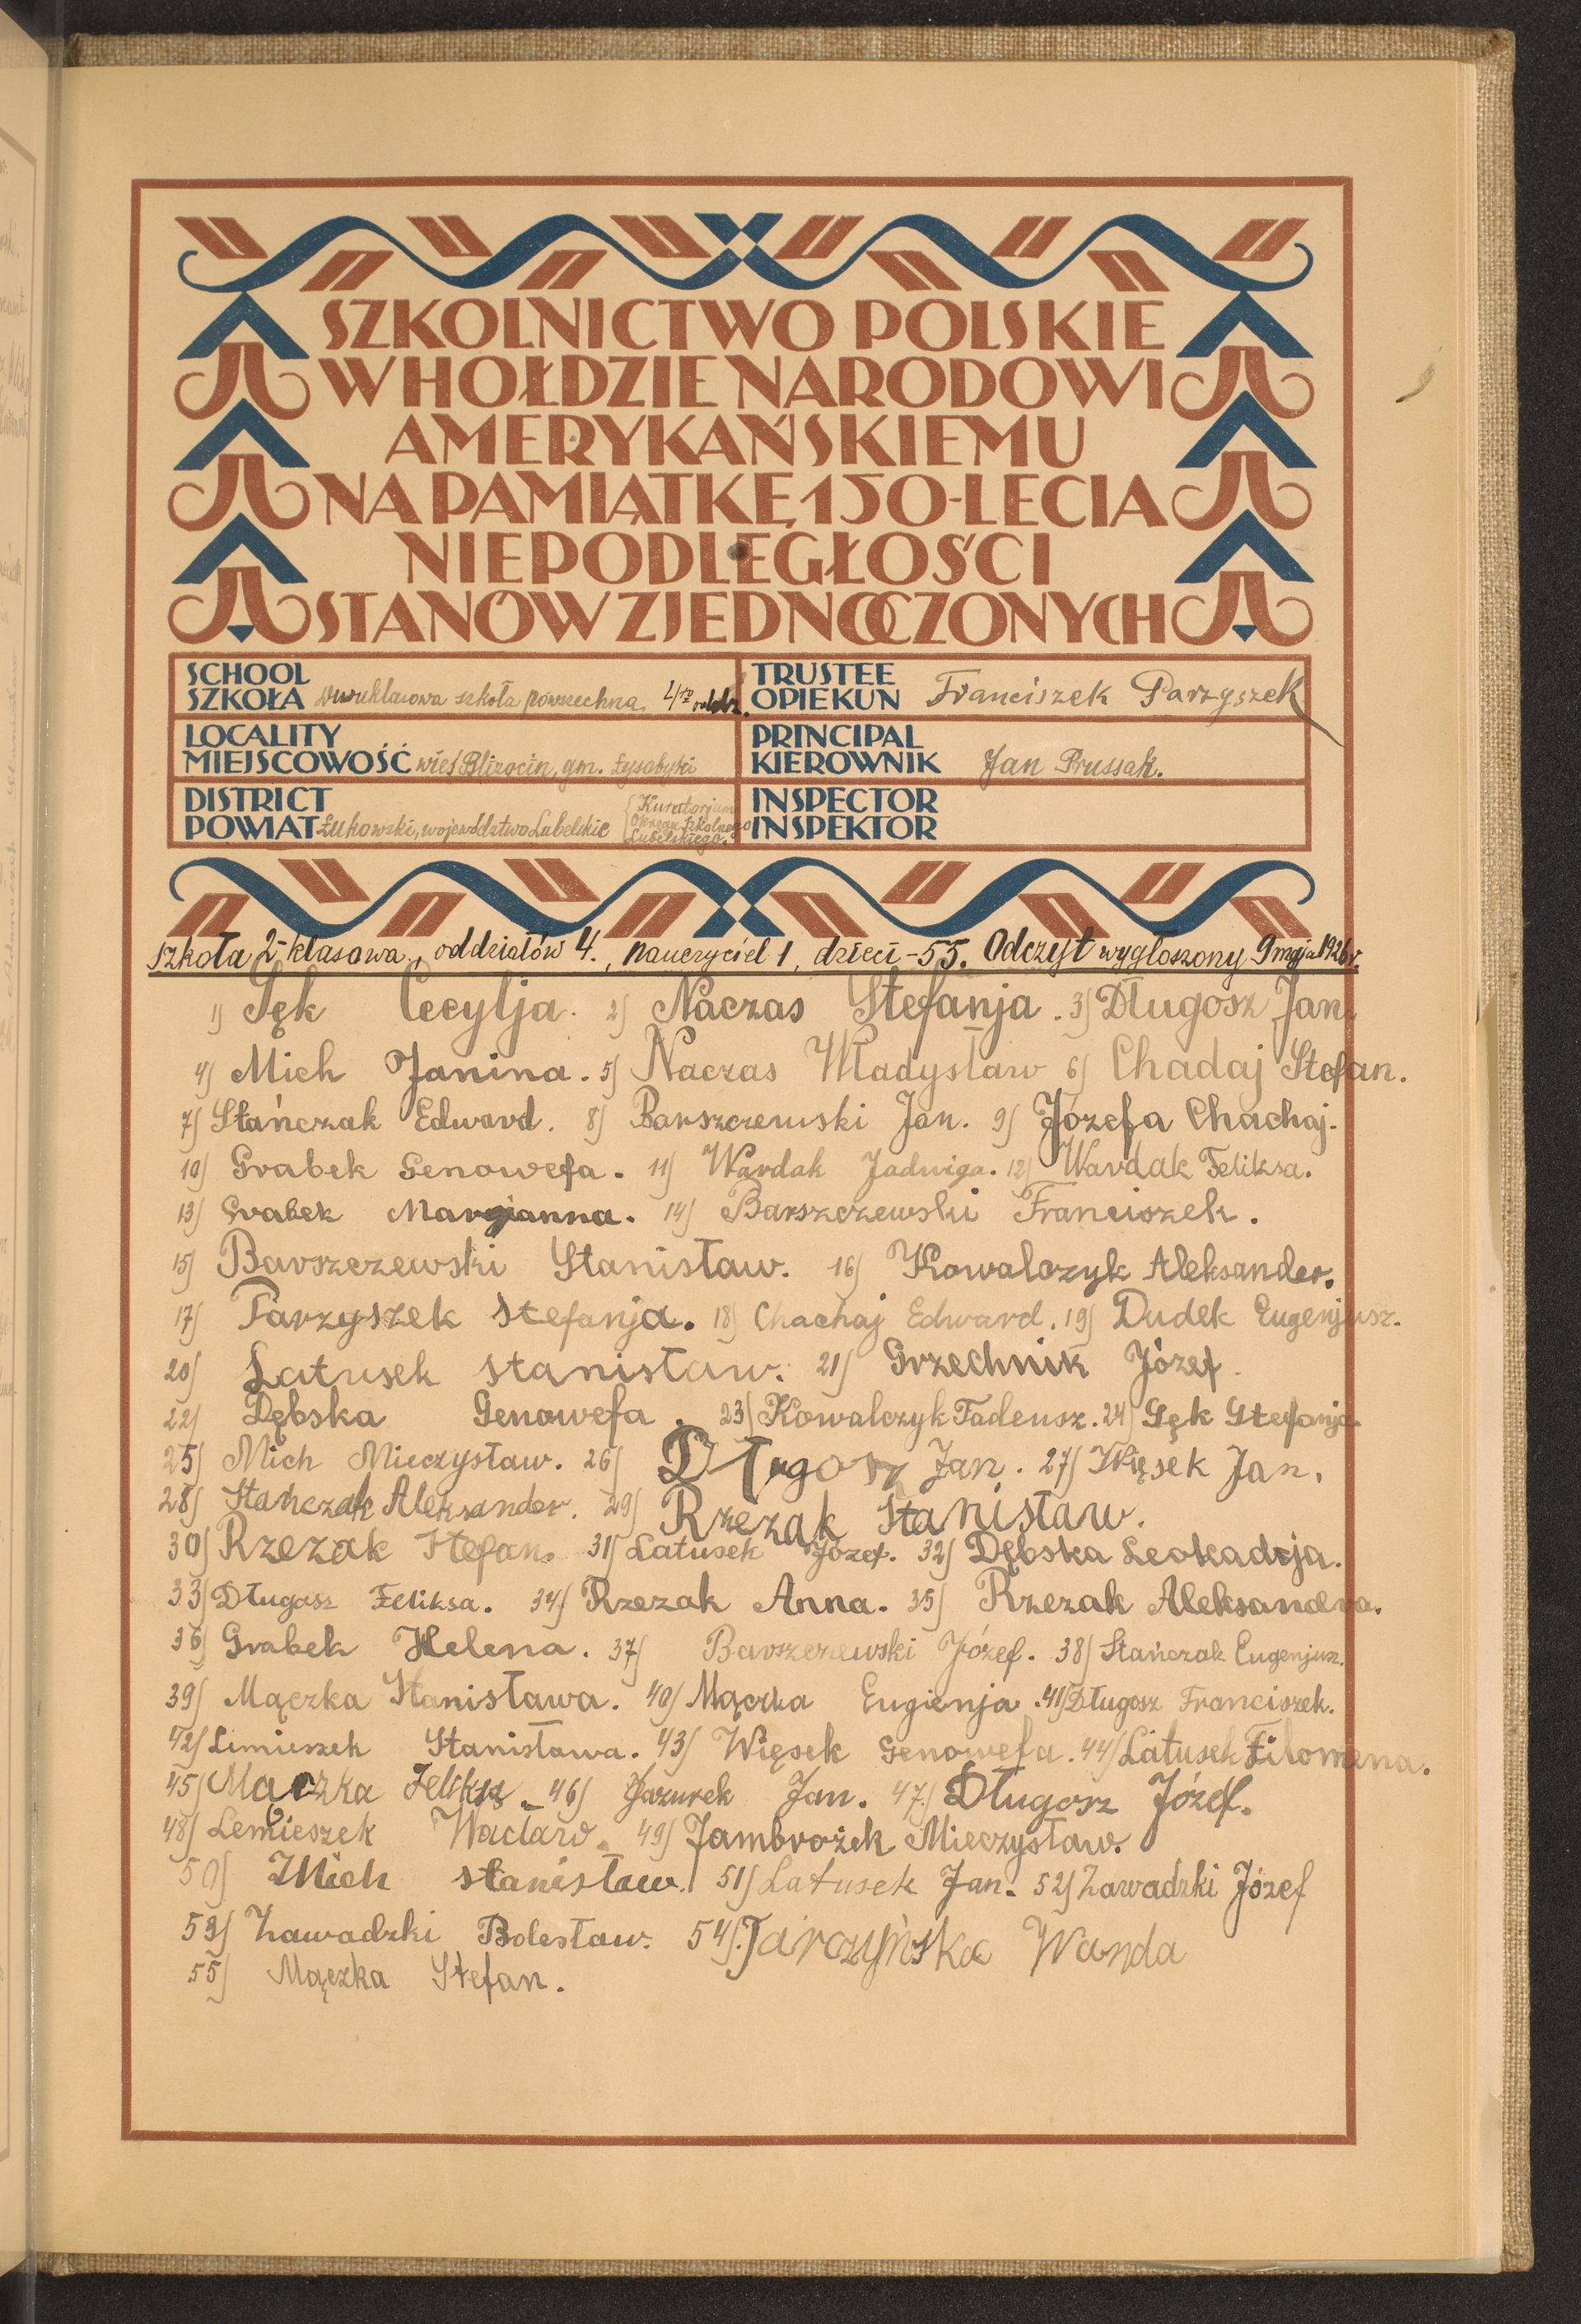 SZKOLNICTWO POLSKIE
W HOŁDZIE NARODOWI
AMERYKAŃSKIEMU
NA PAMIĄTKĘ 150-LECIA
NIEPODLEGŁOŚCI
STANÓW ZJEDNOCZONYCH
SCHOOL
SZKOŁA dwuklasowa szkoła powszechna 4ro oddz.
TRUSTEE
OPIEKUN Franciszek Parzyszek
LOCALITY
MIEJSCOWOŚĆ wieś Blizocin, gm. Łysobyki
PRINCIPAL
KIEROWNIK Jan Prussak.
DISTRICT
POWIAT Łukowski, województwo Lubelskie {Kuratorjum Okręgu Szkolnego Lubelskiego.
INSPECTOR
INSPEKTOR
Szkoła 2-klasowa, oddziałów 4., nauczyciel 1, dzieci - 55. Odczyt wygłoszony 9 maja 1926 r.
1) Sęk Cecylja. 2) Naczas Stefanja. 3) Długosz Jan.
4) Mich Janina. 5) Naczas Władysław 6) Chadaj Stefan.
7) Stańczak Edward. 8) Barszczewski Jan. 9) Józefa Chachaj.
10) Grabek Genowefa. 11) Wardak Jadwiga. 12) Wardak Feliksa.
13) Grabek Marjanna. 14) Barszczewski Franciszek.
15) Barszczewski Stanisław. 16) Kowalczyk Aleksander.
17) Parzyszek Stefanja. 18) Chachaj Edward. 19) Dudek Eugenjusz.
20) Latusek Stanisław. 21) Grzechnik Józef.
22) Dębska Genowefa. 23) Kowalczyk Tadeusz. 24) Sęk Stefanja.
25) Mich Mieczysław. 26) Długosz Jan. 27) Więsek Jan.
28) Stańczak Aleksander. 29) Rzezak Stanisław.
30) Rzezak Stefan. 31) Latusek Józef. 32) Dębska Leokadja.
33) Długosz Feliksa. 34) Rzezak Anna. 35) Rzezak Aleksandra.
36) Grabek Helena. 37) Barszczewski Józef. 38) Stańczak Eugenjusz.
39) Mączka Stanisława. 40) Mączka Eugienja. 41) Długosz Franciszek.
42) Limieszek Stanisława. 43) Więsek Genowefa. 44) Latusek Filomena.
45) Mączka Feliksa. 46) Mazurek Jan. 47.) Długosz Józef.
48) Lemieszek Wacław. 49) Jambrożek Mieczysław.
50) Mich Stanisław. 51) Latusek Jan. 52) Zawadzki Józef
53) Zawadzki Bolesław. 54). Jarczyńska Wanda
55) Mączka Stefan.